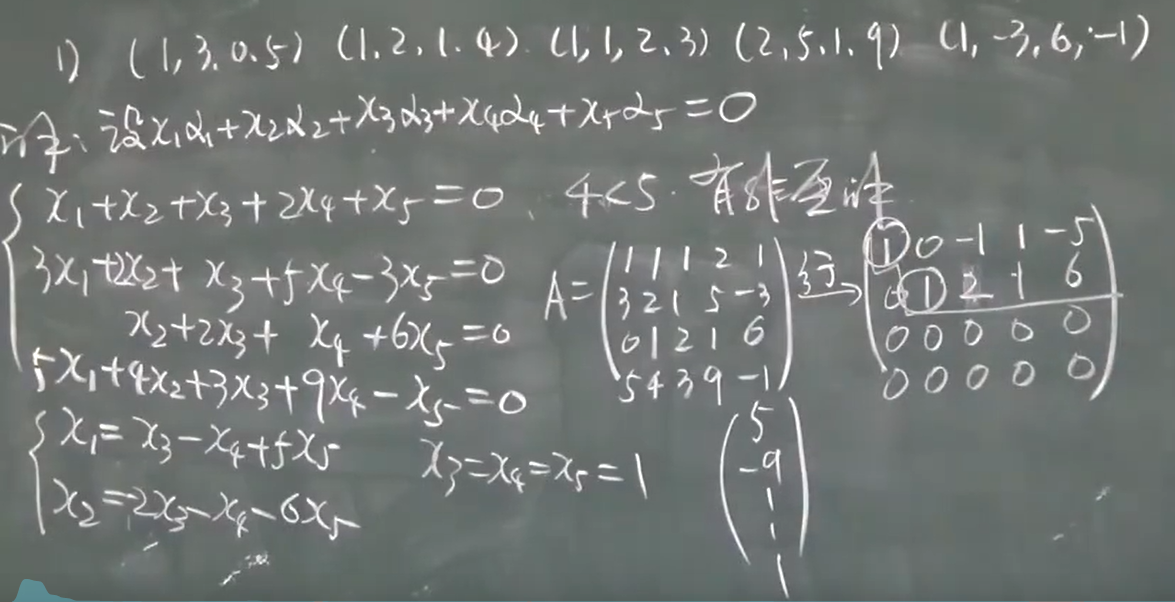 1) (1,3,0,5) (1,2,1,4) (1,1,2,3) (2,5,1,9) (1,-3,6,-1)
解: 设x₁α₁+x₂α₂+x₃α₃+x₄α₄+x₅α₅=0
x₁+x₂+x₃+2x₄+x₅=0, 4<5. 有非零解
3x₁+2x₂+x₃+5x₄-3x₅=0
x₂+2x₃+x₄+6x₅=0
5x₁+4x₂+3x₃+9x₄-x₅=0
A= 行→
1 1 1 2 1
3 2 1 5 -3
0 1 2 1 6
5 4 3 9 -1
1 0 -1 1 -5
0 1 2 1 6
0 0 0 0 0
0 0 0 0 0
x₁=x₃-x₄+5x₅
x₂=-2x₃-x₄-6x₅
x₃=x₄=x₅=1
5
-9
1
1
1